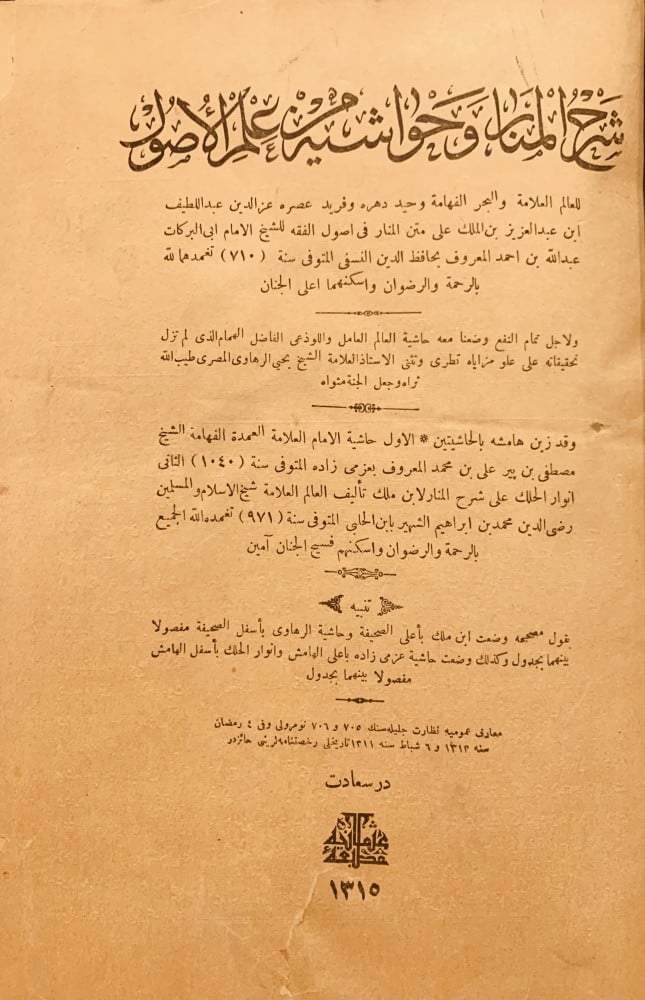 شرح المنار وحواشيه من علم الأصول
للعالم العلامة والبحر الفهامة وحيد دهره وفريد عصره عزالدين عبداللطيف
ابن عبدالعزيز بن الملك على متن المنار فى اصول الفقه للشيخ الامام ابى البركات
عبدالله بن احمد المعروف بحافظ الدين النسفى المتوفى سنة (٧١٠) تغمدهما لله
بالرحمة والرضوان واسكنهما اعلى الجنان
ولاجل تمام النفع وضعنا معه حاشية العالم العامل واللوذعى الفاضل الهمام الذى لم تزل
تحقيقاته على علو مزاياه تطرى وتثنى الاستاذ العلامة الشيخ يحيى الرهاوى المصرى طيب الله
ثراه وجعل الجنة مثواه
وقد زين هامشه بالحاشيتين * الاول حاشية الامام العلامة العمدة الفهامة الشيخ
مصطفى بن پير على بن محمد المعروف بعزمى زاده المتوفى سنة (١٠٤٠) الثانى
انوار الحلك على شرح المنار لابن ملك تأليف العالم العلامة شيخ الاسلام والمسلمين
رضى الدين محمد بن ابراهيم الشهير بابن الحلبى المتوفى سنة (٩٧١) تغمده الله الجميع
بالرحمة والرضوان واسكنهم فسيح الجنان آمين
تنبيه
يقول مصححه وضعت ابن ملك بأعلى الصحيفة وحاشية الرهاوى بأسفل الصحيفة مفصولا
بينهما بجدول وكذلك وضعت حاشية عزمى زاده باعلى الهامش وانوار الحلك بأسفل الهامش
مفصولا بينهما بجدول
معارف عموميه نظارت جليله سنك ٧٠٥ و ٧٠٦ نومرولى وفى ٤ رمضان
سنه ١٣١٣ و ٦ شباط سنه ١٣١١ تاريخلى رخصتنامه لرينى حائزدر
در سعادت
مطبعه عثمانيه
١٣١٥